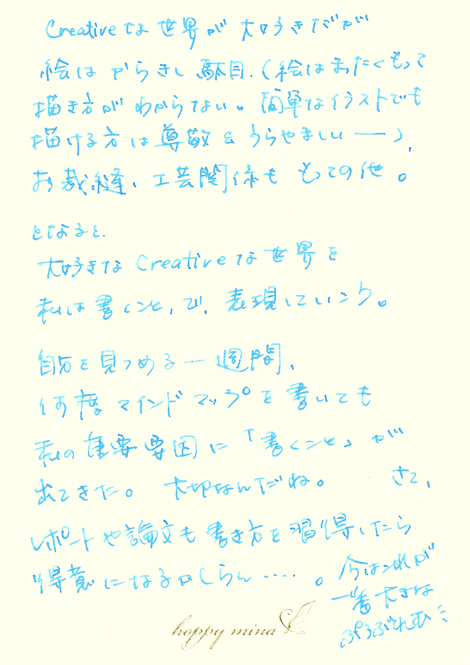 Creativeな世界が大好きだが
絵はからきし駄目。(絵はまったくもって
描き方がわからない。簡単なイラストでも
描ける方は尊敬&うらやましいー)、
お裁縫、工芸関係ももっての他。
となると、
大好きなCreativeな世界を
私は書くこと、で、表現していこう。
自分を見つめる一週間、
何度マインドマップを書いても
私の重要要因に「書くこと」が
出てきた。大切なんだね。 さて、
レポートや論文も書き方を習得したら
得意になるかしらん‥‥。
今はこれが
一番大きな
ぷろぶれむ
happy mina